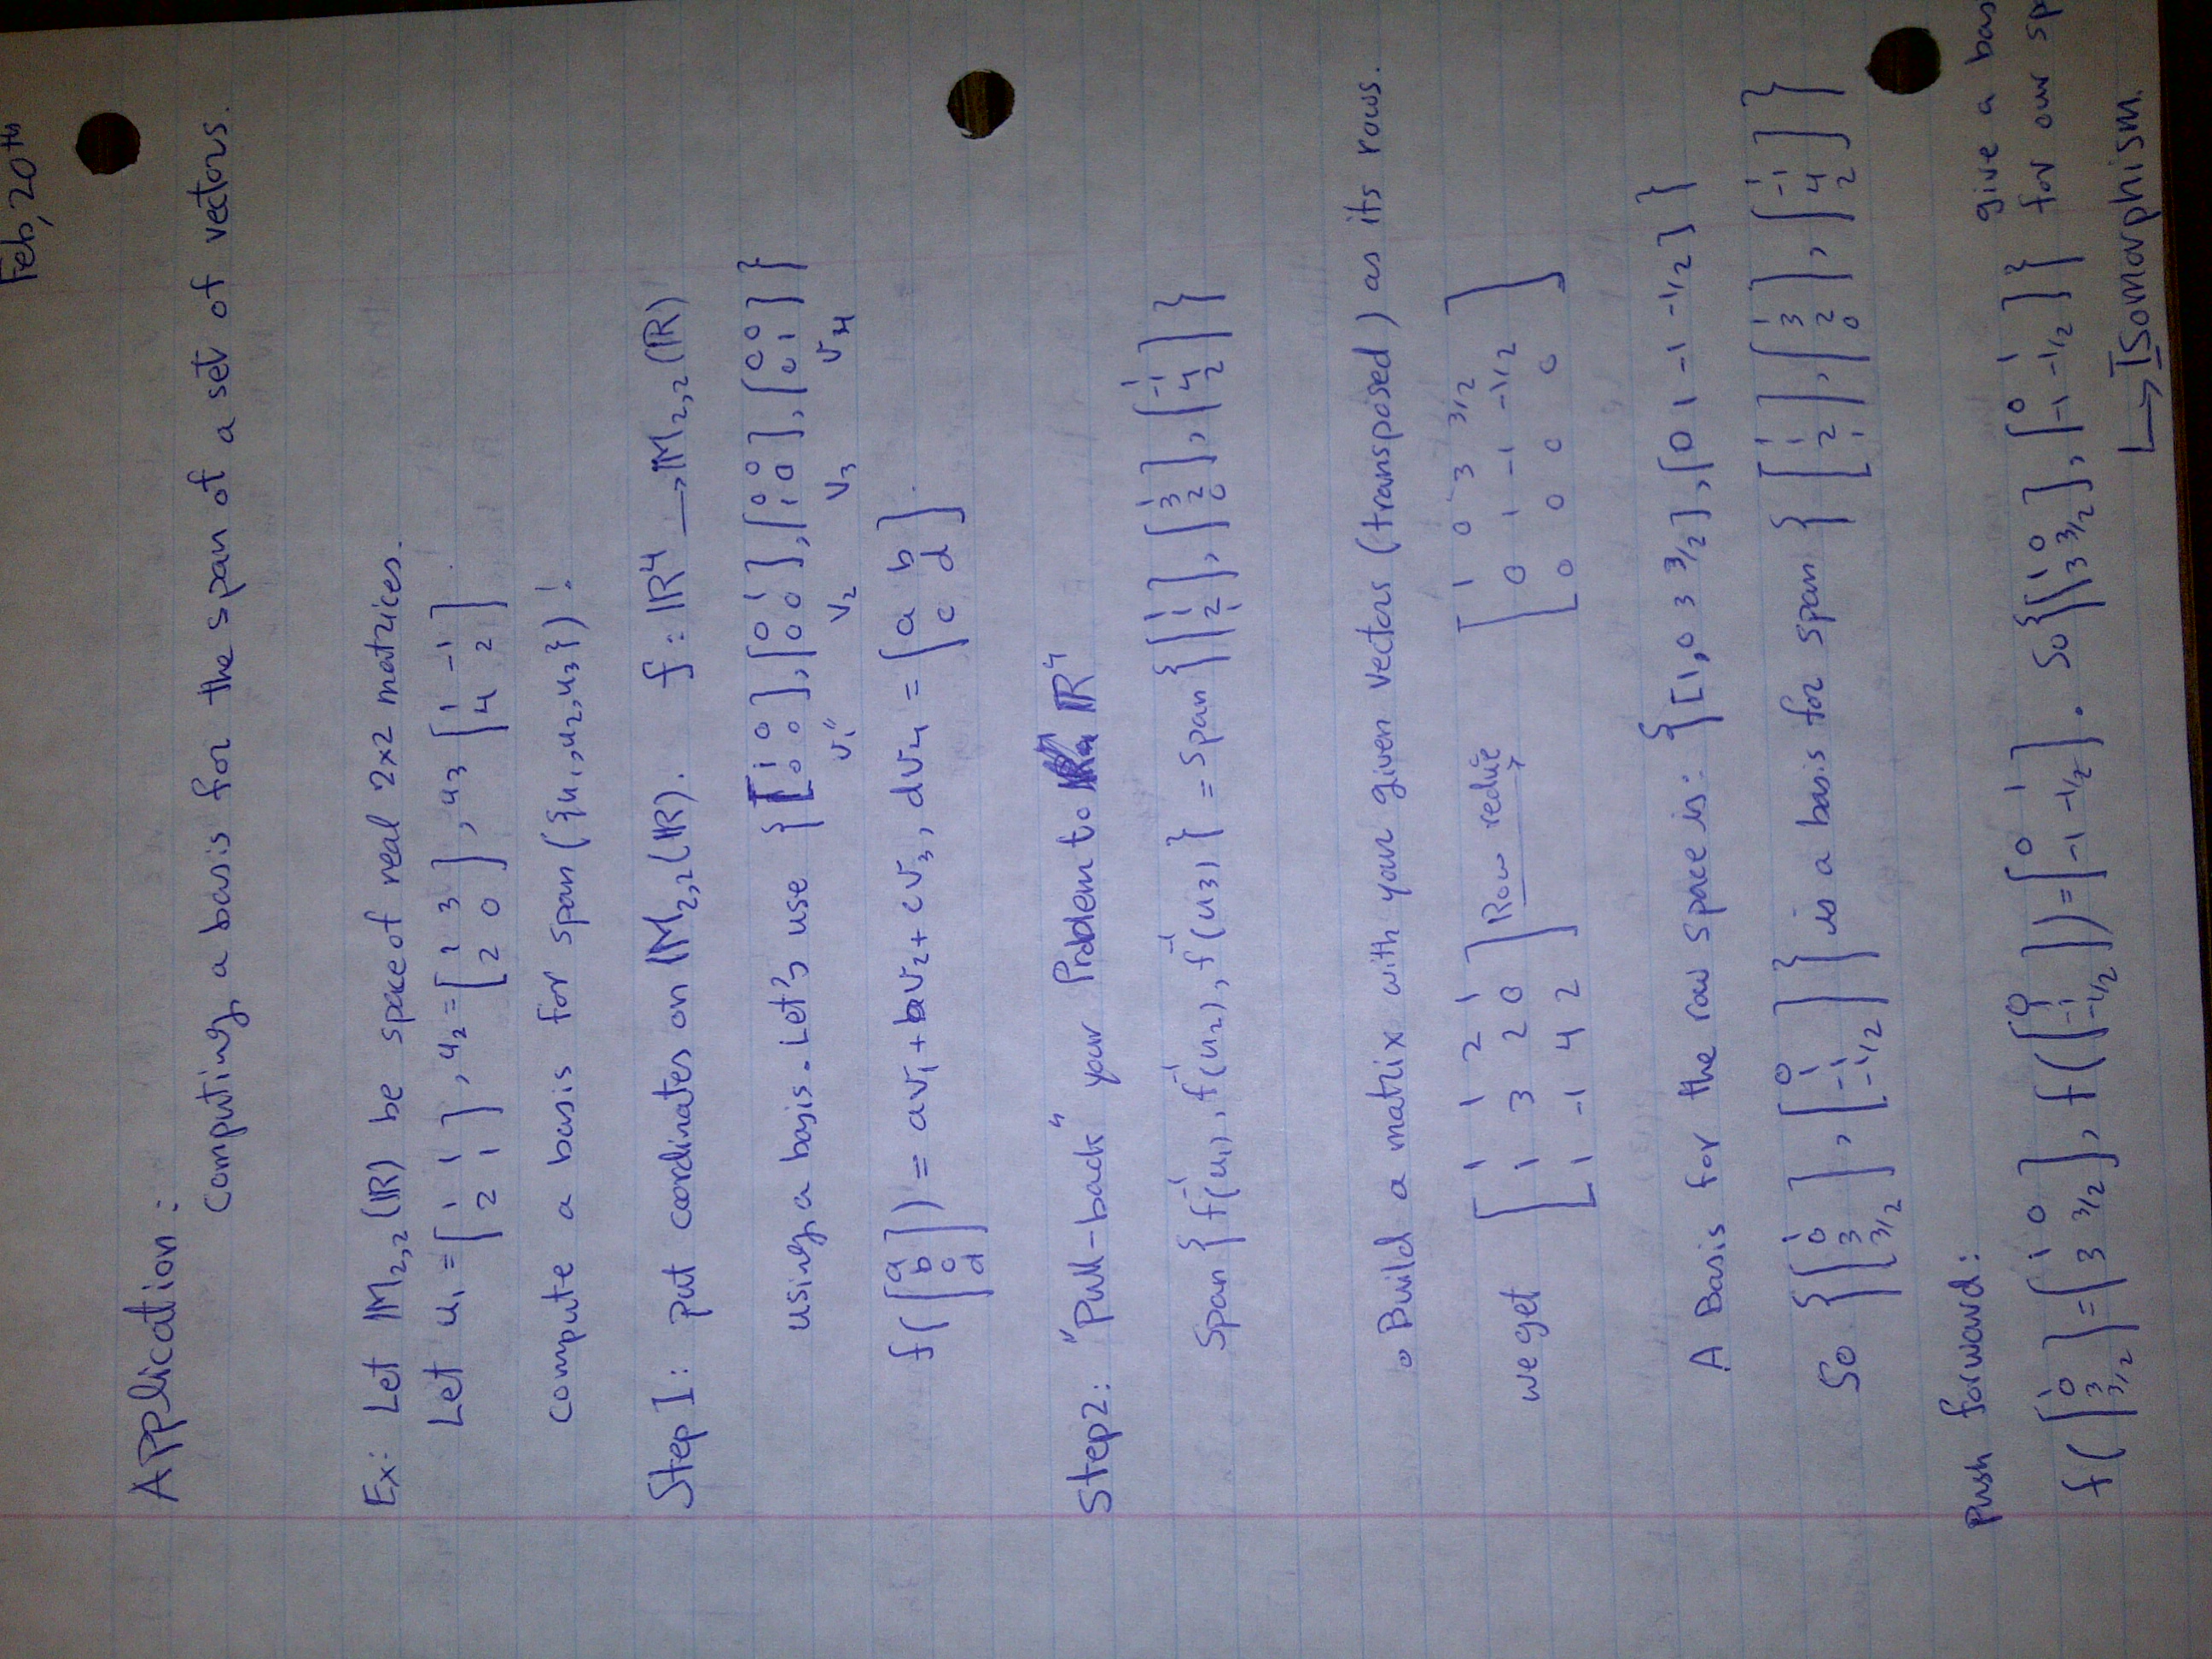 Feb, 20th
Application:
computing a basis for the span of a set of vectors.
Ex: Let M2,2(ℝ) be space of real 2x2 matrices.
Let u1 = [1 1; 2 1], u2 = [1 3; 2 0], u3 [1 -1; 4 2]
compute a basis for span({u1,u2,u3})!
Step I: put coordinates on M2,2(ℝ). f: ℝ⁴ → M2,2(ℝ)
using a basis. Let's use {[1 0; 0 0], [0 1; 0 0], [0 0; 1 0], [0 0; 0 1]}
v1 v2 v3 v4
f([a; b; c; d]) = av1+bv2+cv3, dv4 = [a b; c d].
Step2: "Pull-back" your Problem to ℝ⁴
Span{f⁻¹(u1), f⁻¹(u2), f⁻¹(u3)} = span{[1; 1; 2; 1], [1; 3; 2; 0], [1; -1; 4; 2]}
o Build a matrix with your given vectors (transposed) as its rows.
we get [1 1 2 1; 1 3 2 0; 1 -1 4 2] Row reduce → [1 0 3 3/2; 0 1 -1 -1/2; 0 0 0 0]
A Basis for the row space is: {[1,0 3 3/2], [0 1 -1 -1/2]}
So {[1; 0; 3; 3/2], [0; 1; -1; -1/2]} is a basis for span {[1; 1; 2; 1], [1; 3; 2; 0], [1; -1; 4; 2]}
Push forward:
f([1; 0; 3; 3/2] = [1 0; 3 3/2], f([0; 1; -1; -1/2]) = [0 1; -1 -1/2]. So {[1 0; 3 3/2], [0 1; -1 -1/2]} give a bas
for our sp
↳ Isomorphism.